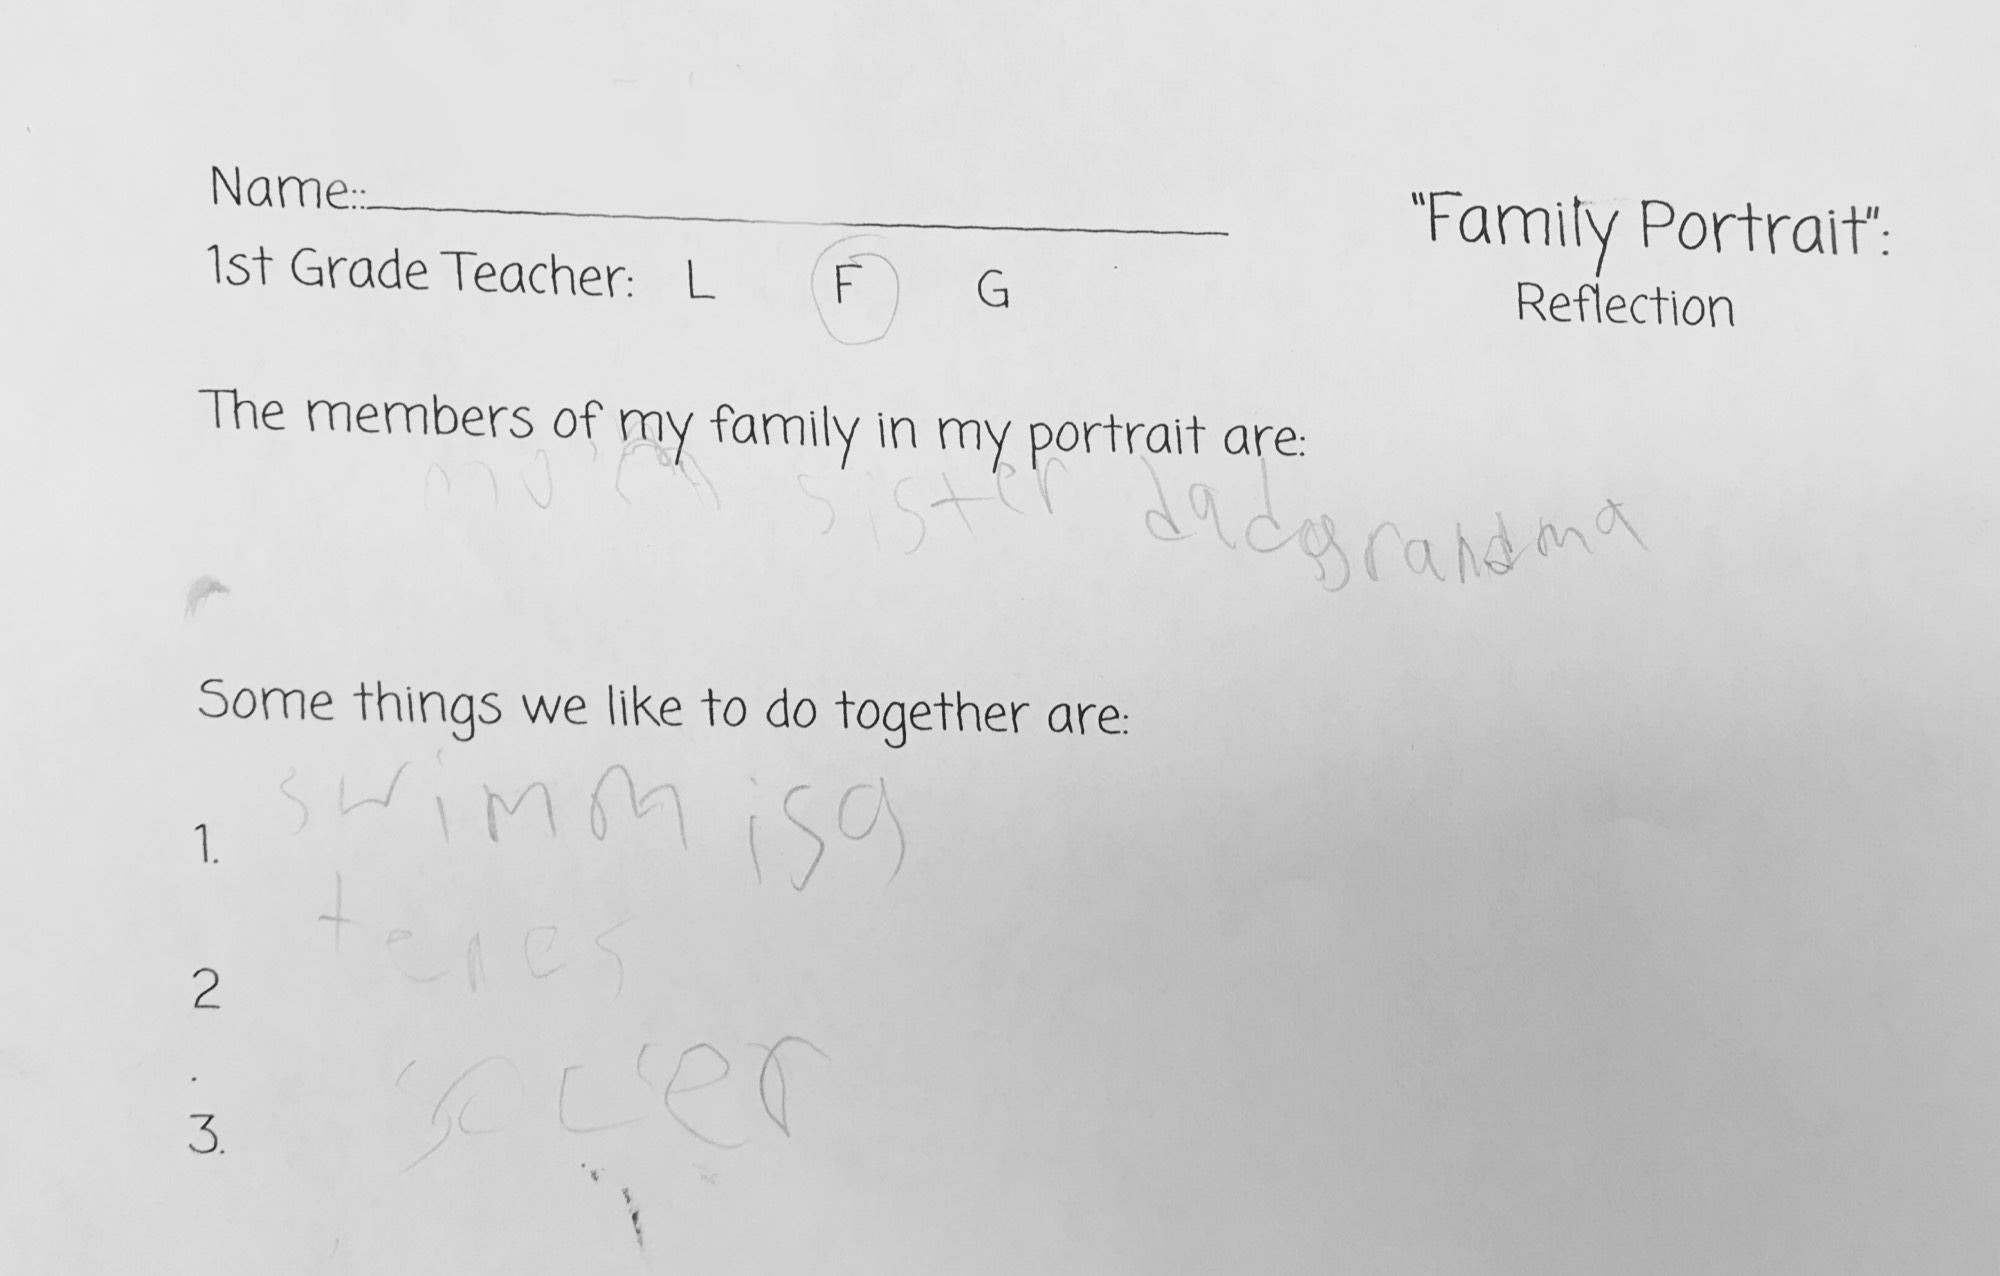 Name::
"Family Portrait":
Reflection
1st Grade Teacher: L F G
The members of my family in my portrait are:
mom sister dad grandma
Some things we like to do together are:
1. swimm isg
2 tenes
.
3. socer